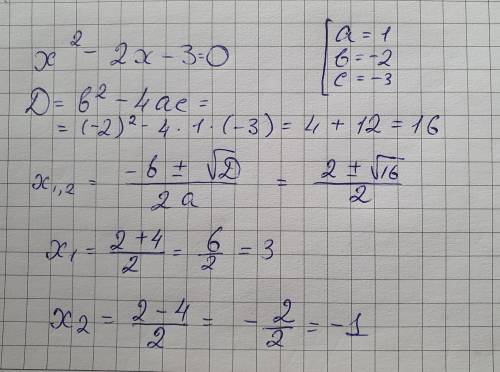 x² - 2x - 3 = 0
a = 1
b = -2
c = -3
D = b² - 4ac =
= (-2)² - 4 · 1 · (-3) = 4 + 12 = 16
x₁,₂ = (-b ± √D)/(2a) = (2 ± √16)/2
x₁ = (2 + 4)/2 = 6/2 = 3
x₂ = (2 - 4)/2 = - 2/2 = -1